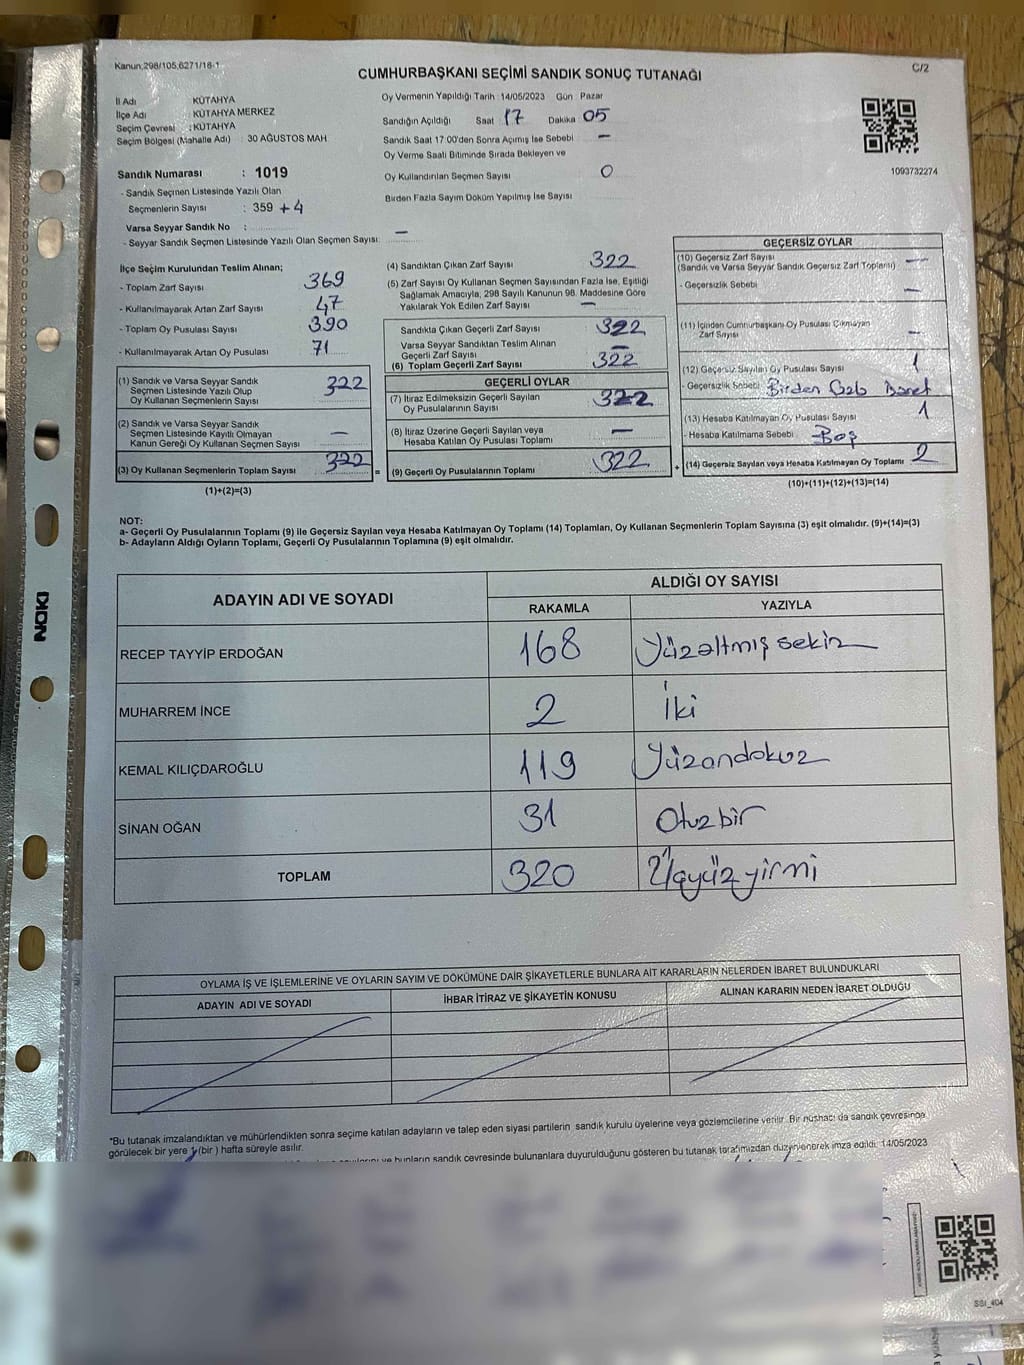 Kanun,298/105,6271/16-1
C/2
CUMHURBAŞKANI SEÇİMİ SANDIK SONUÇ TUTANAĞI
İl Adı KÜTAHYA
İlçe Adı KÜTAHYA MERKEZ
Seçim Çevresi : KÜTAHYA
Seçim Bölgesi (Mahalle Adı) : 30 AĞUSTOS MAH
Sandık Numarası : 1019
- Sandık Seçmen Listesinde Yazılı Olan
Seçmenlerin Sayısı : 359 +4
Varsa Seyyar Sandık No :
- Seyyar Sandık Seçmen Listesinde Yazılı Olan Seçmen Sayısı: –
Oy Vermenin Yapıldığı Tarih : 14/05/2023 Gün : Pazar
Sandığın Açıldığı Saat 17 Dakika 05
Sandık Saat 17:00'den Sonra Açımış İse Sebebi –
Oy Verme Saati Bitiminde Sırada Bekleyen ve
Oy Kullandırılan Seçmen Sayısı 0
Birden Fazla Sayım Döküm Yapılmış İse Sayısı
1093732274
İlçe Seçim Kurulundan Teslim Alınan;
- Toplam Zarf Sayısı 369
- Kullanılmayarak Artan Zarf Sayısı 47
- Toplam Oy Pusulası Sayısı 390
- Kullanılmayarak Artan Oy Pusulası 71
(1) Sandık ve Varsa Seyyar Sandık
Seçmen Listesinde Yazılı Olup
Oy Kullanan Seçmenlerin Sayısı 322
(2) Sandık ve Varsa Seyyar Sandık
Seçmen Listesinde Kayıtlı Olmayan
Kanun Gereği Oy Kullanan Seçmen Sayısı –
(3) Oy Kullanan Seçmenlerin Toplam Sayısı 322
(1)+(2)=(3)
(4) Sandıktan Çıkan Zarf Sayısı 322
(5) Zarf Sayısı Oy Kullanan Seçmen Sayısından Fazla İse, Eşitliği
Sağlamak Amacıyla, 298 Sayılı Kanunun 98. Maddesine Göre
Yakılarak Yok Edilen Zarf Sayısı –
Sandıkta Çıkan Geçerli Zarf Sayısı 322
Varsa Seyyar Sandıktan Teslim Alınan
Geçerli Zarf Sayısı –
(6) Toplam Geçerli Zarf Sayısı 322
GEÇERLİ OYLAR
(7) İtiraz Edilmeksizin Geçerli Sayılan
Oy Pusulalarının Sayısı 322
(8) İtiraz Üzerine Geçerli Sayılan veya
Hesaba Katılan Oy Pusulası Toplamı –
= (9) Geçerli Oy Pusulalarının Toplamı 322
GEÇERSİZ OYLAR
(10) Geçersiz Zarf Sayısı
(Sandık ve Varsa Seyyar Sandık Geçersiz Zarf Toplamı) –
- Geçersizlik Sebebi –
(11) İçinden Cumhurbaşkanı Oy Pusulası Çıkmayan
Zarf Sayısı –
(12) Geçersiz Sayılan Oy Pusulası Sayısı 1
- Geçersizlik Sebebi Birden
(13) Hesaba Katılmayan Oy Pusulası Sayısı 1
- Hesaba Katılmama Sebebi Boş
+ (14) Geçersiz Sayılan veya Hesaba Katılmayan Oy Toplamı 2
(10)+(11)+(12)+(13)=(14)
NOT:
a- Geçerli Oy Pusulalarının Toplamı (9) ile Geçersiz Sayılan veya Hesaba Katılmayan Oy Toplamı (14) Toplamları, Oy Kullanan Seçmenlerin Toplam Sayısına (3) eşit olmalıdır. (9)+(14)=(3)
b- Adayların Aldığı Oyların Toplamı, Geçerli Oy Pusulalarının Toplamına (9) eşit olmalıdır.
ADAYIN ADI VE SOYADI
ALDIĞI OY SAYISI
RAKAMLA YAZIYLA
RECEP TAYYİP ERDOĞAN 168 Yüzaltmış sekiz
MUHARREM İNCE 2 İki
KEMAL KILIÇDAROĞLU 119 Yüzondokuz
SİNAN OĞAN 31 Otuzbir
TOPLAM 320 Üçyüzyirmi
OYLAMA İŞ VE İŞLEMLERİNE VE OYLARIN SAYIM VE DÖKÜMÜNE DAİR ŞİKAYETLERLE BUNLARA AİT KARARLARIN NELERDEN İBARET BULUNDUKLARI
ADAYIN ADI VE SOYADI İHBAR İTİRAZ VE ŞİKAYETİN KONUSU ALINAN KARARIN NEDEN İBARET OLDUĞU
*Bu tutanak imzalandıktan ve mühürlendikten sonra seçime katılan adayların ve talep eden siyasi partilerin sandık kurulu üyelerine veya gözlemcilerine verilir. Bir nüshası da sandık çevresinde
görülecek bir yere 1 (bir) hafta süreyle asılır.
ve bunların sandık çevresinde bulunanlara duyurulduğunu gösteren bu tutanak tarafımızdan düzenlenerek imza edildi. 14/05/2023
SSI_404
NOKI